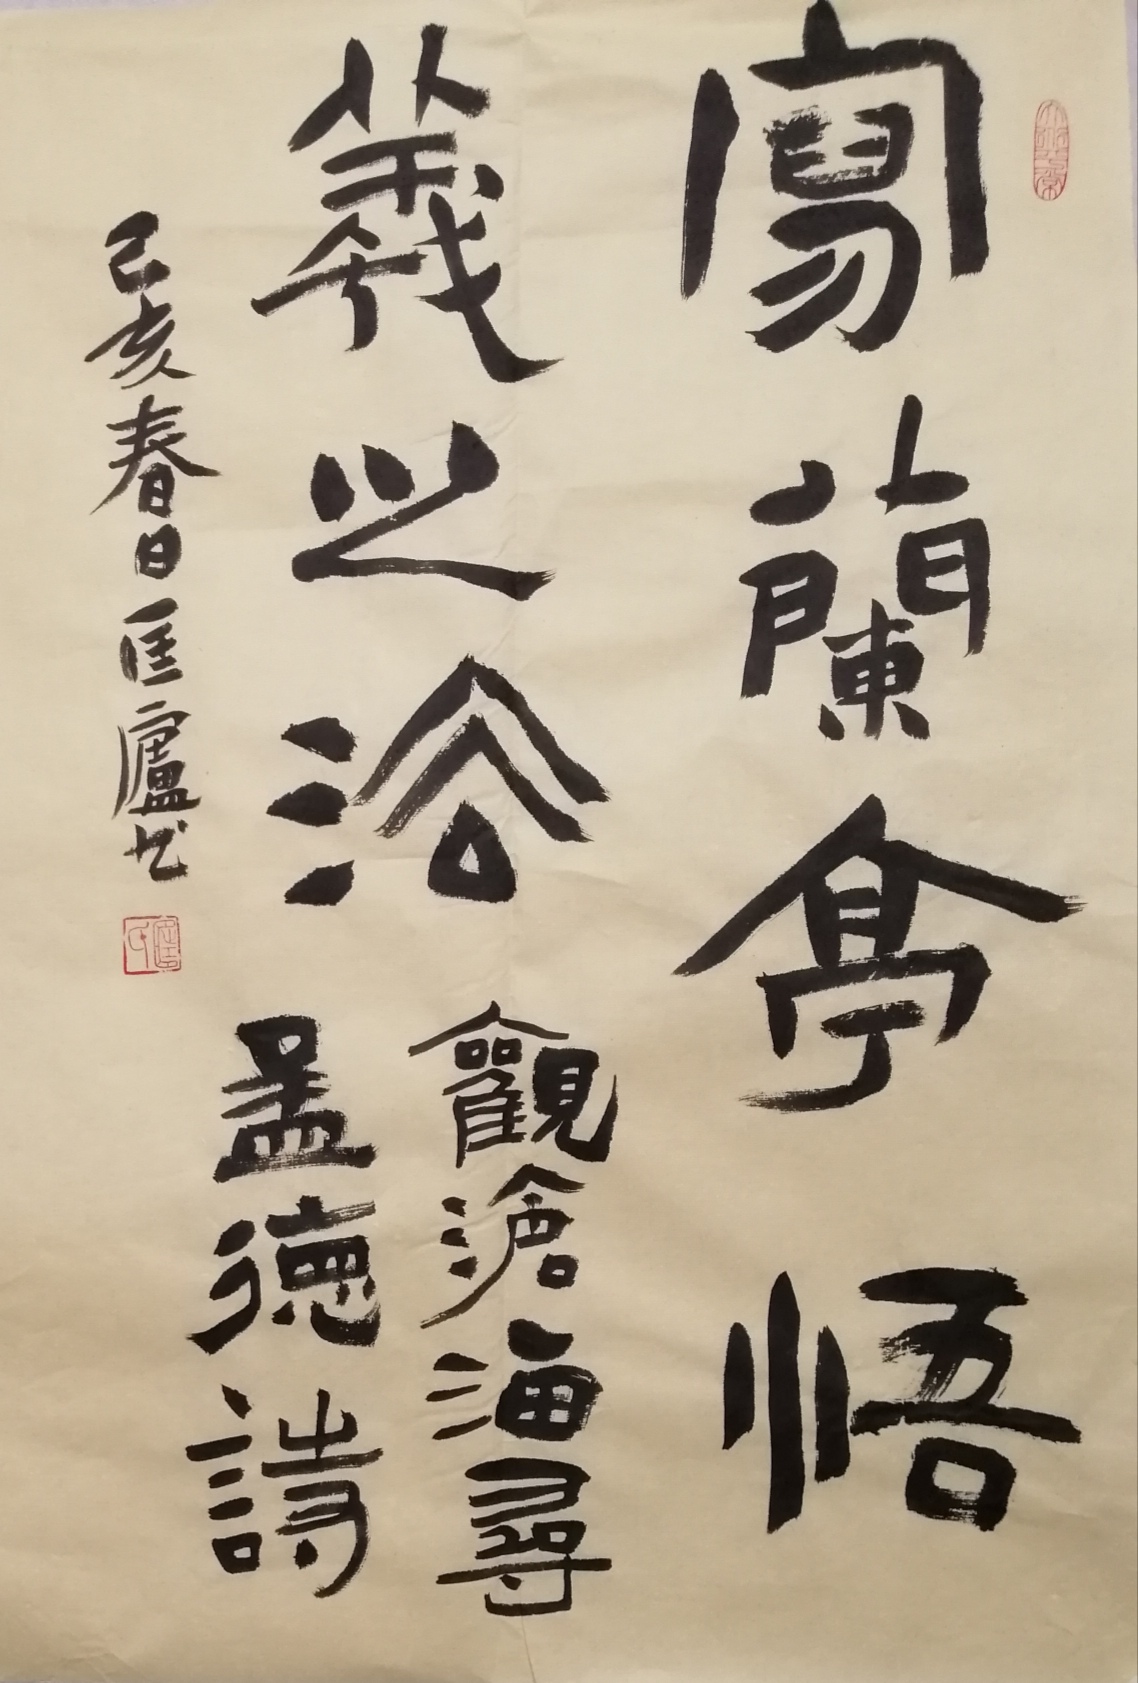 寫蘭亭悟
羲之法
觀滄海尋
孟德詩
己亥春日匡廬书